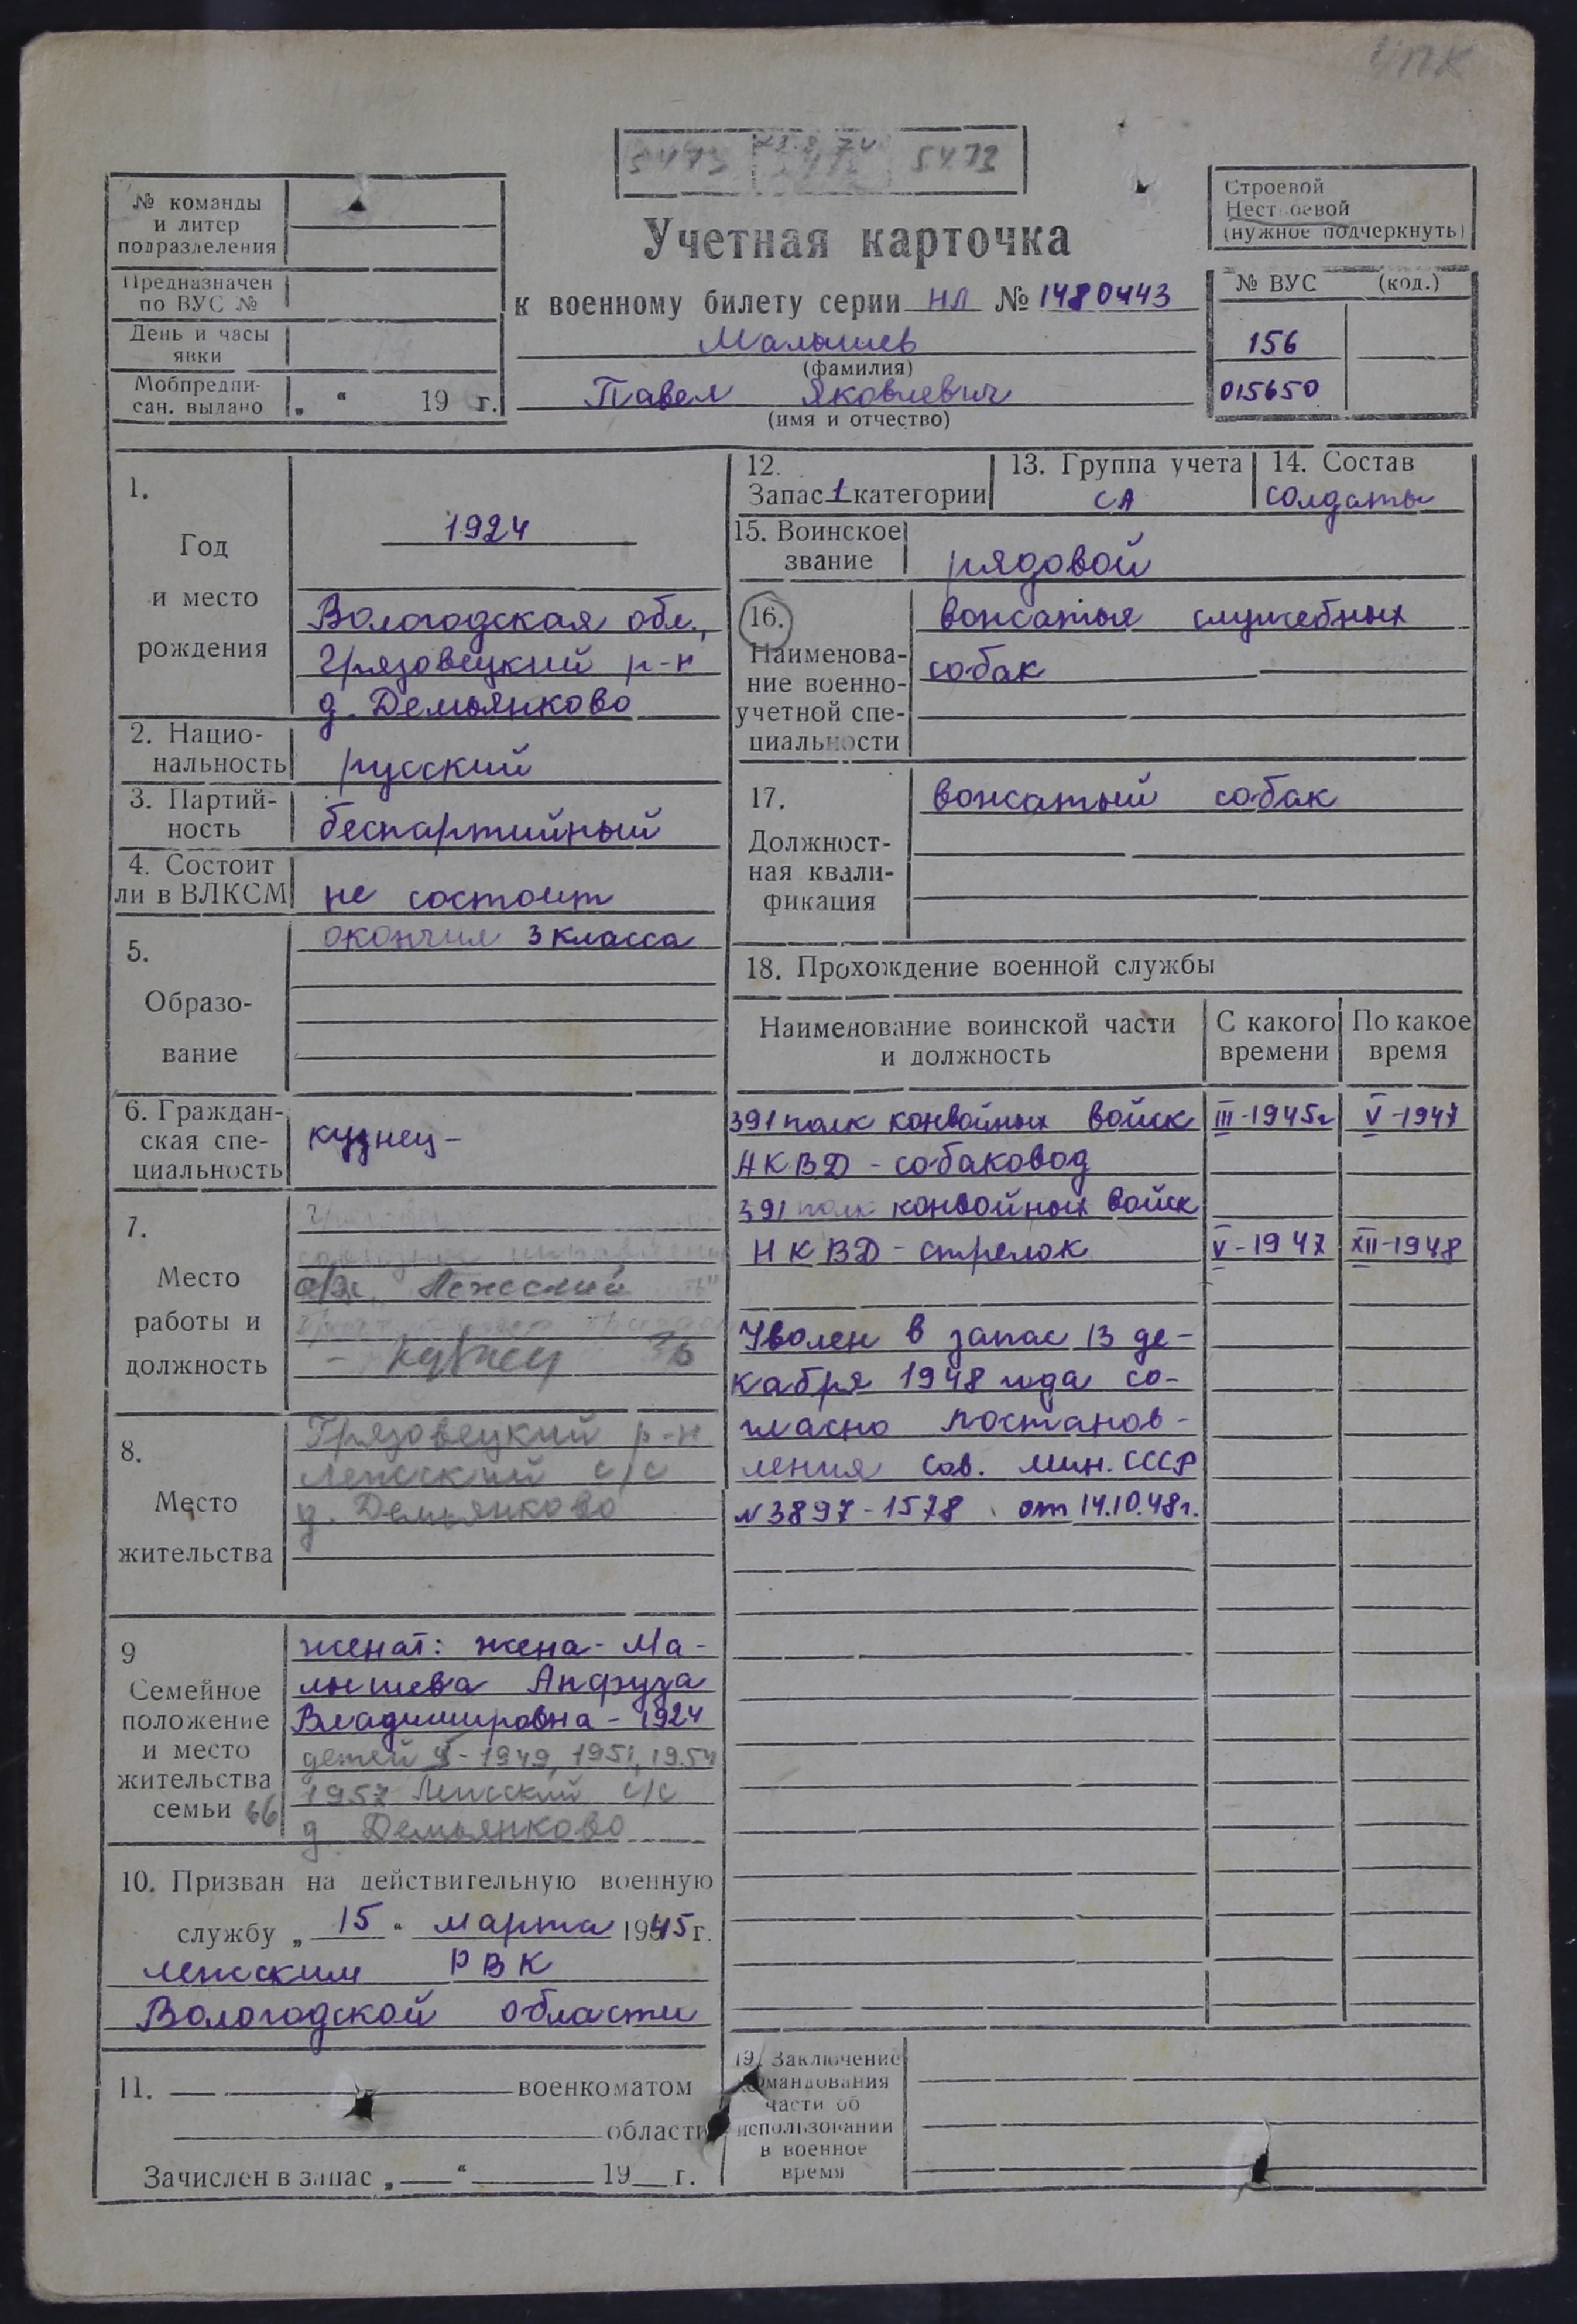 УПК
5473 5473
№ команды
и литер
подразделения
Предназначен
по ВУС №
День и часы
явки
Мобпредпи-
сан. выдано „ “ 19 г.
Учетная карточка
к военному билету серии НЛ № 1480443
Малышев
(фамилия)
Павел Яковлевич
(имя и отчество)
Строевой
Нестроевой
(нужное подчеркнуть)
№ ВУС (код.)
156
015650
1.
Год
и место
рождения
1924
Вологодская обл.,
Грязовецкий р-н
д. Демьянково
2. Нацио-
нальность русский
3. Партий-
ность беспартийный
4. Состоит
ли в ВЛКСМ не состоит
5.
Образо-
вание
окончил 3 класса
6. Граждан-
ская спе-
циальность
кузнец-
7.
Место
работы и
должность
Лежский
- кузнец
8.
Место
жительства
Грязовецкий р-н
Лежский с/с
д. Демьянково
9
Семейное
положение
и место
жительства
семьи 66
женат: жена - Ма-
лышева Анфуза
Владимировна - 1924
детей 4 - 1949, 1951, 1954
1957 Лежский с/с
д. Демьянково
10. Призван на действительную военную
службу „ 15 “ марта 1945 г.
Лежским РВК
Вологодской области
11. военкоматом
области
Зачислен в запас „ “ 19 г.
12.
Запас 1 категории
13. Группа учета
СА
14. Состав
солдаты
15. Воинское
звание рядовой
16.
Наименова-
ние военно-
учетной спе-
циальности
вожатые служебных
собак
17.
Должност-
ная квали-
фикация
вожатый собак
18. Прохождение военной службы
Наименование воинской части
и должность
С какого
времени
По какое
время
391 полк конвойных войск III-1945г V-1947
НКВД - собаковод
391 полк конвойных войск
НКВД - стрелок V-1947 XII-1948
Уволен в запас 13 де-
кабря 1948 года со-
гласно постанов-
ления Сов. Мин. СССР
N 3897-1578 от 14.10.48г.
19. Заключение
командования
части об
использовании
в военное
время